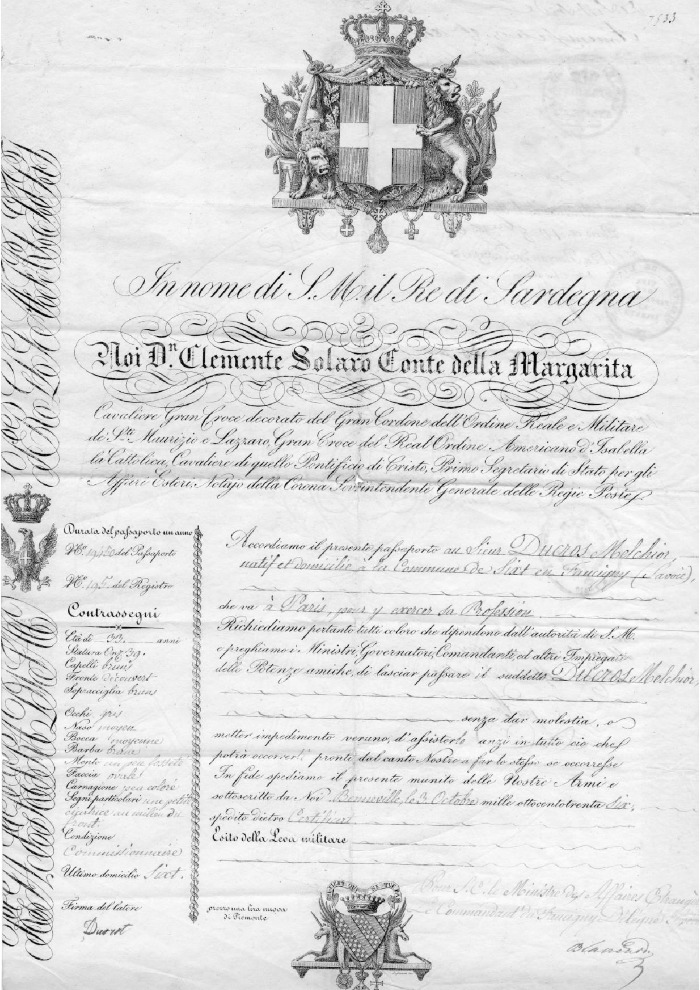 7533
In nome di S. M. il Re di Sardegna
Noi Dn. Clemente Solaro Conte della Margarita
Cavaliere Gran Croce decorato del Gran Cordone dell'Ordine Reale e Militare
de' Sti. Maurizio e Lazzaro, Gran Croce del Real Ordine Americano d'Isabella
la Cattolica, Cavaliere di quello Pontificio di Cristo, Primo Segretario di Stato per gli
Affari Esteri, Notajo della Corona Sovrintendente Generale delle Regie Poste
Durata del passaporto un anno
No. del Passaporto
No. del Registro
Contrassegni
Età di 33 anni
Statura Onz 39
Capelli bruns
Fronte découvert
Sopracciglia bruns
Occhi gris
Naso moyen
Bocca moyenne
Barba brune
Mento un peu
Faccia ovale
Carnagione peu colorée
Segni particolari une petite
cicatrice au milieu du
Condizione
Commissionnaire
Ultimo domicilio Sixt.
Firma del latore
Ducrot
Accordiamo il presente passaporto au Sieur Ducros Melchior
natif et domicilié à la Commune de Sixt en Faucigny (Savoie),
che va à Paris, pour y exercer sa Profession
Richiediamo pertanto tutti coloro che dipendono dall'autorità di S. M.
e preghiamo i Ministri, Governatori, Comandanti, ed altre Impiegati
delle Potenze amiche, di lasciar passare il suddetto Ducros Melchior,
senza dar molestia, o
metter impedimento veruno, d'assisterlo anzi in tutto ciò che
potrà occorrerli, pronte dal canto Nostro a far lo stesso se occorresse
In fede spediamo il presente munito delle Nostre Armi e
sottoscritto da Noi Bonneville, le 3 Octobre mille ottocentotrenta Six.
spedito dietro Certificat
Esito della Leva militare
Pour S. E. le Ministre des Affaires Etrangères
le Commandant du Faucigny
prezzo una lira nuova
di Piemonte